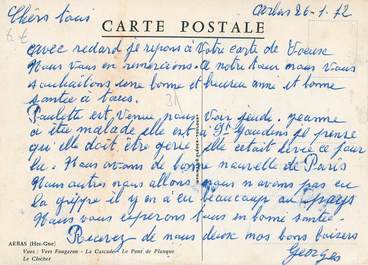 Chers tous
Arbas 26-1.72
CARTE POSTALE
avec redard je repons a Votre carte de Voeuse
Nous Vous en remercions. a notre tour nous Vous
souhaitons une bonne et heureu anné et bonne
santée a tous.
Paulette est Venue nous Voir jeudi. Jeanne
a étu malade elle est a St Gaudens je prense
qu'elle doit être gerie elle cetait levée ce jour
la. Nous avons de bonne nouvelle de Paris
Nous autres nous allons nous n'avons pas eu
la grippre il y en a eu beaucoups au pays
Nous Vous esperons tous en bonne santé.
Recevez de nous deux mos bons baisers
Georges
ARBAS (Hte-Gne)
Vues : Vers Fougaron - La Cascade - Le Pont de Planque
Le Clocher